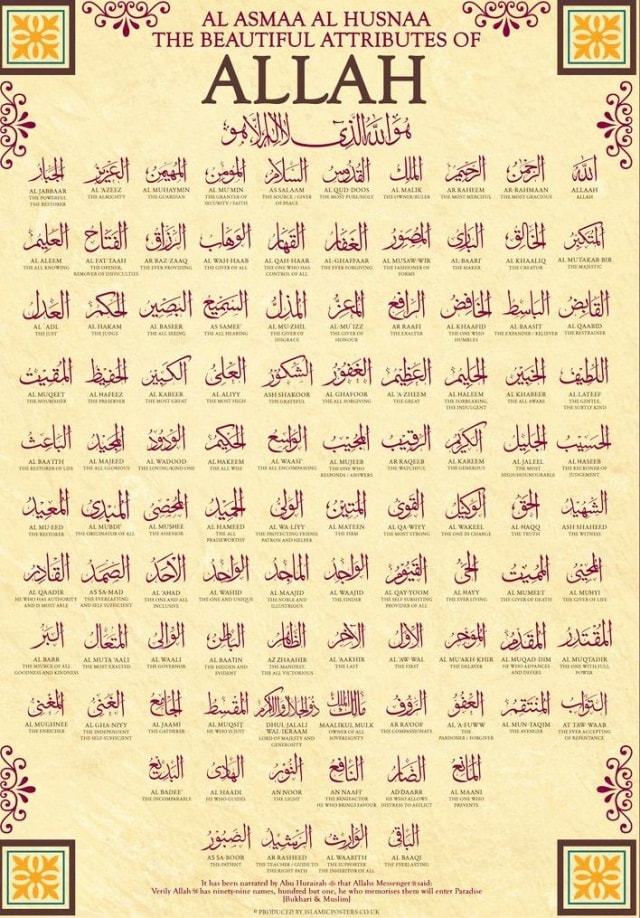 AL ASMAA AL HUSNAA
THE BEAUTIFUL ATTRIBUTES OF
ALLAH
هو الله الذي لا إله إلا هو
الله الرحمن الرحيم الملك القدوس السلام المؤمن المهيمن العزيز الجبار
AL JABBAAR AL 'AZEEZ AL MUHAYMIN AL MU'MIN AS SALAAM AL QUD-DOOS AL MALIK AR RAHEEM AR-RAHMAAN ALLAAH
THE POWERFUL THE ALMIGHTY THE GUARDIAN THE GRANTER OF THE SOURCE / GIVER THE MOST PURE/HOLY THE OWNER/RULER THE MOST MERCIFUL THE MOST GRACIOUS ALLAH
THE RESTORER SECURITY / FAITH OF PEACE
المتكبر الخالق البارئ المصور الغفار القهار الوهاب الرزاق الفتاح العليم
AL ALEEM AL FAT TAAH AR RAZ ZAAQ AL WAH HAAB AL QAH HAAR AL-GHAFFAAR AL MUSAW-WIR AL BAARI' AL KHAALIQ AL MUTAKAB BIR
THE ALL KNOWING THE OPENER, THE EVER PROVIDING THE GIVER OF ALL THE ONE WHO HAS THE EVER FORGIVING THE FASHIONER OF THE MAKER THE CREATOR THE MAJESTIC
REMOVER OF DIFFICULTIES CONTROL OF ALL FORMS
القابض الباسط الخافض الرافع المعز المذل السميع البصير الحكم العدل
AL 'ADL AL HAKAM AL BASEER AS SAMEE' AL MU-ZHIL AL-MU'IZZ AR RAAFI AL KHAAFID AL BAASIT AL QAABID
THE JUST THE JUDGE THE ALL SEEING THE ALL HEARING THE GIVER OF THE GIVER OF THE EXALTER THE ONE WHO THE EXPANDER / RELIEVER THE RESTRAINER
DISGRACE HONOUR HUMBLES
اللطيف الخبير الحليم العظيم الغفور الشكور العلي الكبير الحفيظ المقيت
AL MUQEET AL HAFEEZ AL KABEER AL ALIYY ASH SHAKOOR AL GHAFOOR AL 'A-ZHEEM AL HALEEM AL KHABEER AL LATEEF
THE NOURISHER THE PRESERVER THE MOST GREAT THE MOST HIGH THE GRATEFUL THE ALL FORGIVING THE GREAT THE FORBEARING, THE ALL AWARE THE GENTLE,
THE INDULGENT THE SUBTLY KIND
الحسيب الجليل الكريم الرقيب المجيب الواسع الحكيم الودود المجيد الباعث
AL BAA'ITH AL MAJEED AL WADOOD AL HAKEEM AL WAASI' AL MUJEEB AR RAQEEB AL KAREEM AL JALEEL AL HASEEB
THE RESTORER OF LIFE THE ALL GLORIOUS THE LOVING/KIND ONE THE ALL WISE THE ALL ENCOMPASSING THE ONE WHO THE WATCHFUL THE GENEROUS THE MOST THE RECKONER OF
RESPONDS / ANSWERS HIGH/HONOURABLE JUDGEMENT
الشهيد الحق الوكيل القوي المتين الولي الحميد المحصي المبدئ المعيد
AL MU'EED AL MUBDI' AL MUSHEE AL HAMEED AL WA LIYY AL MATEEN AL QA-WIYY AL WAKEEL AL-HAQQ ASH SHAHEED
THE RESTORER THE ORIGINATOR OF ALL THE ASSESSOR THE ALL THE PROTECTING FRIEND THE FIRM THE MOST STRONG THE ONE IN CHARGE THE TRUTH THE WITNESS
PRAISEWORTHY PATRON AND HELPER
المحيي المميت الحي القيوم الواجد الماجد الواحد الأحد الصمد القادر
AL QAADIR AS SA-MAD AL 'AHAD AL WAHID AL MAAJID AL WAAJID AL QAY-YOOM AL HAYY AL MUMEET AL MUHYI
HE WHO HAS AUTHORITY THE EVERLASTING THE ONE AND ALL THE ONE AND UNIQUE THE NOBLE AND THE FINDER THE SELF SUBSISTING THE EVER LIVING THE GIVER OF DEATH THE GIVER OF LIFE
AND IS MOST ABLE AND SELF SUFFICIENT INCLUSIVE ILLUSTRIOUS PROVIDER OF ALL
المقتدر المقدم المؤخر الأول الآخر الظاهر الباطن الوالي المتعال البر
AL BARR AL MUTA 'AALI AL WAALI AL BAATIN AZ ZHAAHIR AL 'AAKHIR AL 'AW WAL AL MU'AKH KHIR AL MUQAD DIM AL MUQTADIR
THE SOURCE OF ALL THE MOST EXALTED THE GOVERNOR THE HIDDEN AND THE MANIFEST, THE LAST THE FIRST THE DELAYER HE WHO ADVANCES THE ONE WITH FULL
GOODNESS AND KINDNESS EVIDENT THE ALL VICTORIOUS POWER
التواب المنتقم العفو الرؤوف مالك الملك ذو الجلال والإكرام المقسط الجامع الغني المغني
AL MUGHNEE AL GHA-NIYY AL JAAMI AL MUQSIT DHUL JALALI MAALIKUL MULK AR RA'OOF AL 'A-FUWW AL MUN-TAQIM AT TAW-WAAB
THE ENRICHER THE INDEPENDENT THE GATHERER HE WHO IS JUST WAL-IKRAAM OWNER OF ALL THE COMPASSIONATE THE THE AVENGER THE EVER ACCEPTING
THE SELF-SUFFICIENT LORD OF MAJESTY AND SOVEREIGNTY PARDONER / FORGIVER OF REPENTANCE
GENEROSITY
المانع الضار النافع النور الهادي البديع
AL BADEE' AL HAADI AN NOOR AN NAAFI' AD DAARR AL MAANI
THE INCOMPARABLE HE WHO GUIDES THE LIGHT THE BENEFACTOR HE WHO ALLOWS THE ONE WHO
HE WHO BRINGS FAVOUR DISTRESS TO AFFLICT PREVENTS
الباقي الوارث الرشيد الصبور
AS SA-BOOR AR RASHEED AL WAARITH AL BAAQI
THE PATIENT THE TEACHER / GUIDE TO THE SUPPORTER THE EVERLASTING
THE RIGHT PATH THE INHERITOR OF ALL
It has been narrated by Abu Hurairah ﷺ that Allahs Messenger ﷺ said:
Verily Allah ﷻ has ninety-nine names, hundred but one, he who memorises them will enter Paradise
[Bukhari & Muslim]
© PRODUCED BY ISLAMICPOSTERS.CO.UK